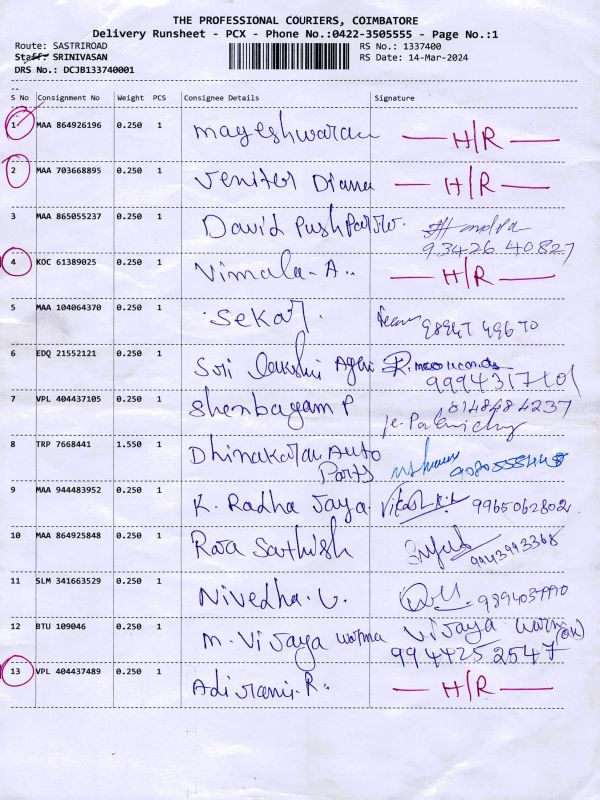 THE PROFESSIONAL COURIERS, COIMBATORE
Delivery Runsheet - PCX - Phone No.:0422-3505555 - Page No.:1
Route: SASTRIROAD RS No.: 1337400
Staff: SRINIVASAN RS Date: 14-Mar-2024
DRS No.: DCJB133740001
S No Consignment No Weight PCS Consignee Details Signature
1 MAA 864926196 0.250 1 Mageshwaran H/R
2 MAA 703668895 0.250 1 Veniter Diana H/R
3 MAA 865055237 0.250 1 David
93426 40827
4 KOC 61389025 0.250 1 Vimala-A.. H/R
5 MAA 104064370 0.250 1 Sekar. 98947 49670
6 EDQ 21552121 0.250 1 Sri Lakshmi
7 VPL 404437105 0.250 1 Shenbagam P 8148484237
8 TRP 7668441 1.550 1 Dhinakaran Auto
Parts
9 MAA 944483952 0.250 1 K. Radha Jaya. 9965062802
10 MAA 864925848 0.250 1 Raja Sathish 9443943368
11 SLM 341663529 0.250 1 Nivedha. U.
12 BTU 109046 0.250 1 M. Vijaya Warma Vijaya
9944252547
13 VPL 404437489 0.250 1 Adirami. R. H/R